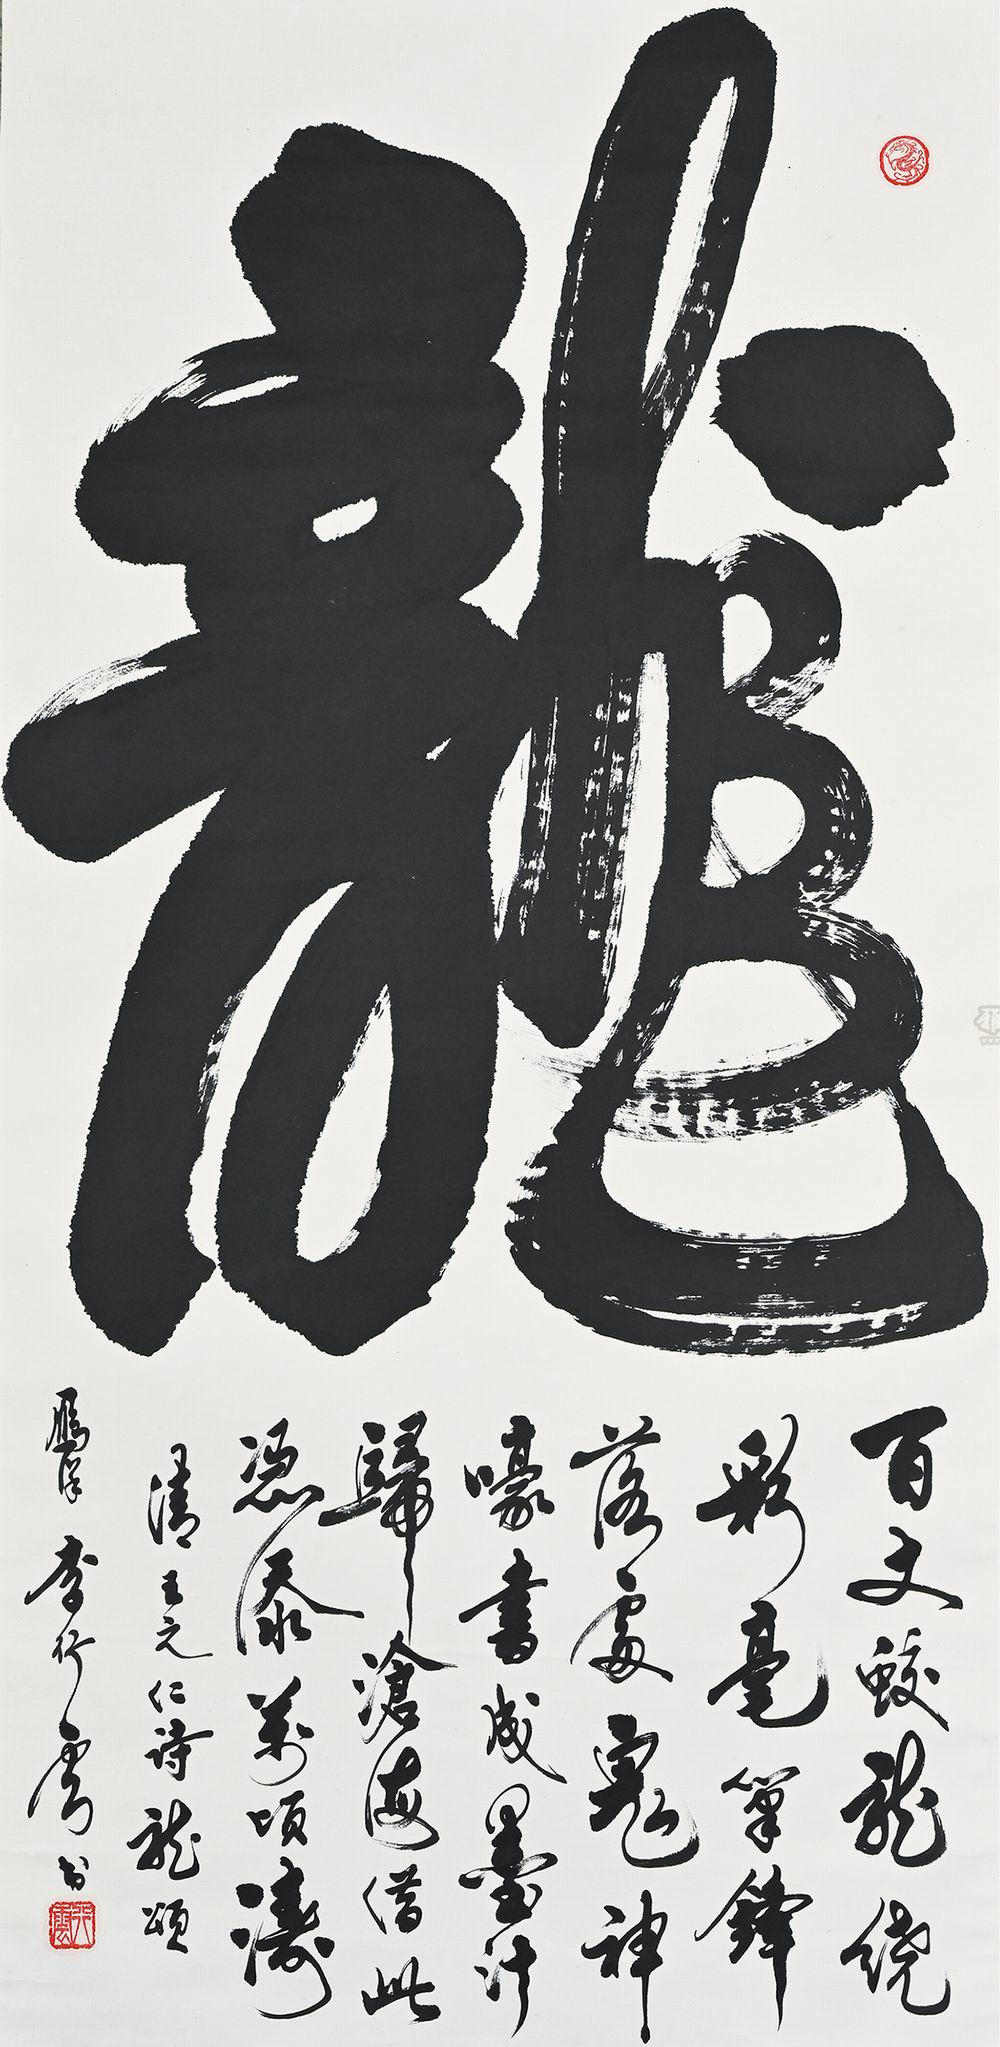 龍
百丈蛟龍繞
彩毫筆鋒
落處鬼神
嚎書成墨汁
歸滄海借此
憑添萬頃濤
清王元仁詩龍頌
李行雲书